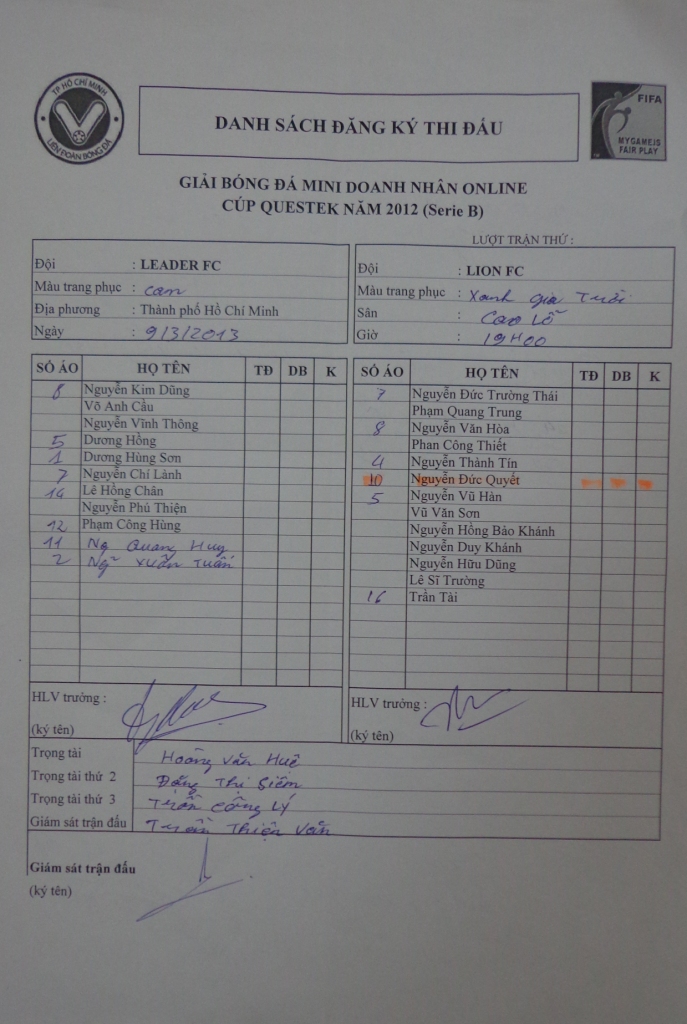 TP HỒ CHÍ MINH
LIÊN ĐOÀN BÓNG ĐÁ
DANH SÁCH ĐĂNG KÝ THI ĐẤU
FIFA
MY GAME IS
FAIR PLAY
GIẢI BÓNG ĐÁ MINI DOANH NHÂN ONLINE
CÚP QUESTEK NĂM 2012 (Serie B)
LƯỢT TRẬN THỨ :
Đội : LEADER FC
Màu trang phục : cam
Địa phương : Thành phố Hồ Chí Minh
Ngày : 9/3/2013
Đội : LION FC
Màu trang phục : Xanh gia Trời
Sân : Cao Lỗ
Giờ : 19H00
SỐ ÁO HỌ TÊN TĐ DB K
8 Nguyễn Kim Dũng
Võ Anh Cầu
Nguyễn Vĩnh Thông
5 Dương Hồng
1 Dương Hùng Sơn
7 Nguyễn Chí Lành
14 Lê Hồng Chân
Nguyễn Phú Thiện
12 Phạm Công Hùng
11 Ng Quang Huy
2 Ng Xuân Tuấn
SỐ ÁO HỌ TÊN TĐ DB K
7 Nguyễn Đức Trường Thái
Phạm Quang Trung
8 Nguyễn Văn Hòa
Phan Công Thiết
4 Nguyễn Thành Tín
10 Nguyễn Đức Quyết
5 Nguyễn Vũ Hàn
Vũ Văn Sơn
Nguyễn Hồng Bảo Khánh
Nguyễn Duy Khánh
Nguyễn Hữu Dũng
Lê Sĩ Trường
16 Trần Tài
HLV trưởng :
(ký tên)
HLV trưởng :
(ký tên)
Trọng tài Hoàng Văn Huê
Trọng tài thứ 2 Đặng Thị Siêm
Trọng tài thứ 3 Trần Công Lý
Giám sát trận đấu Trần Thiện Văn
Giám sát trận đấu
(ký tên)